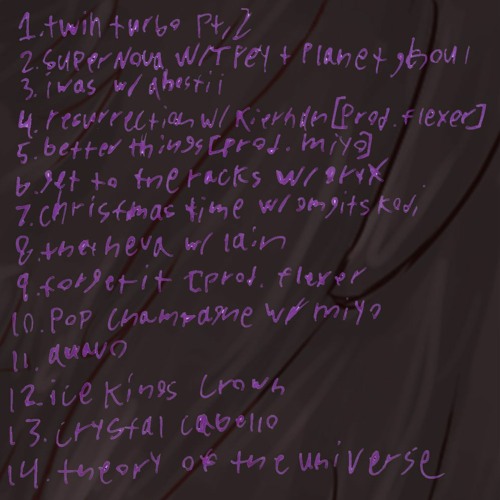 1. twin turbo Pt, 2
2. superNova W/TREY + Planet ghoul
3. i was w/ ghostii
4. resurrection w/ Kierhdn [Prod. flexer]
5. better things [prod. miyo]
6. jet to the racks w/
7. christmas time w/ omgitskodi
8. w/ lain
9. forget it [prod. flexer
10. POP Champagne w/ miyo
11. quavo
12. ice Kings Crown
13. crystal cabello
14. theory of the universe